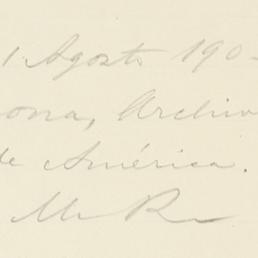 1 Agosto 190
ona, Archivo
de América.